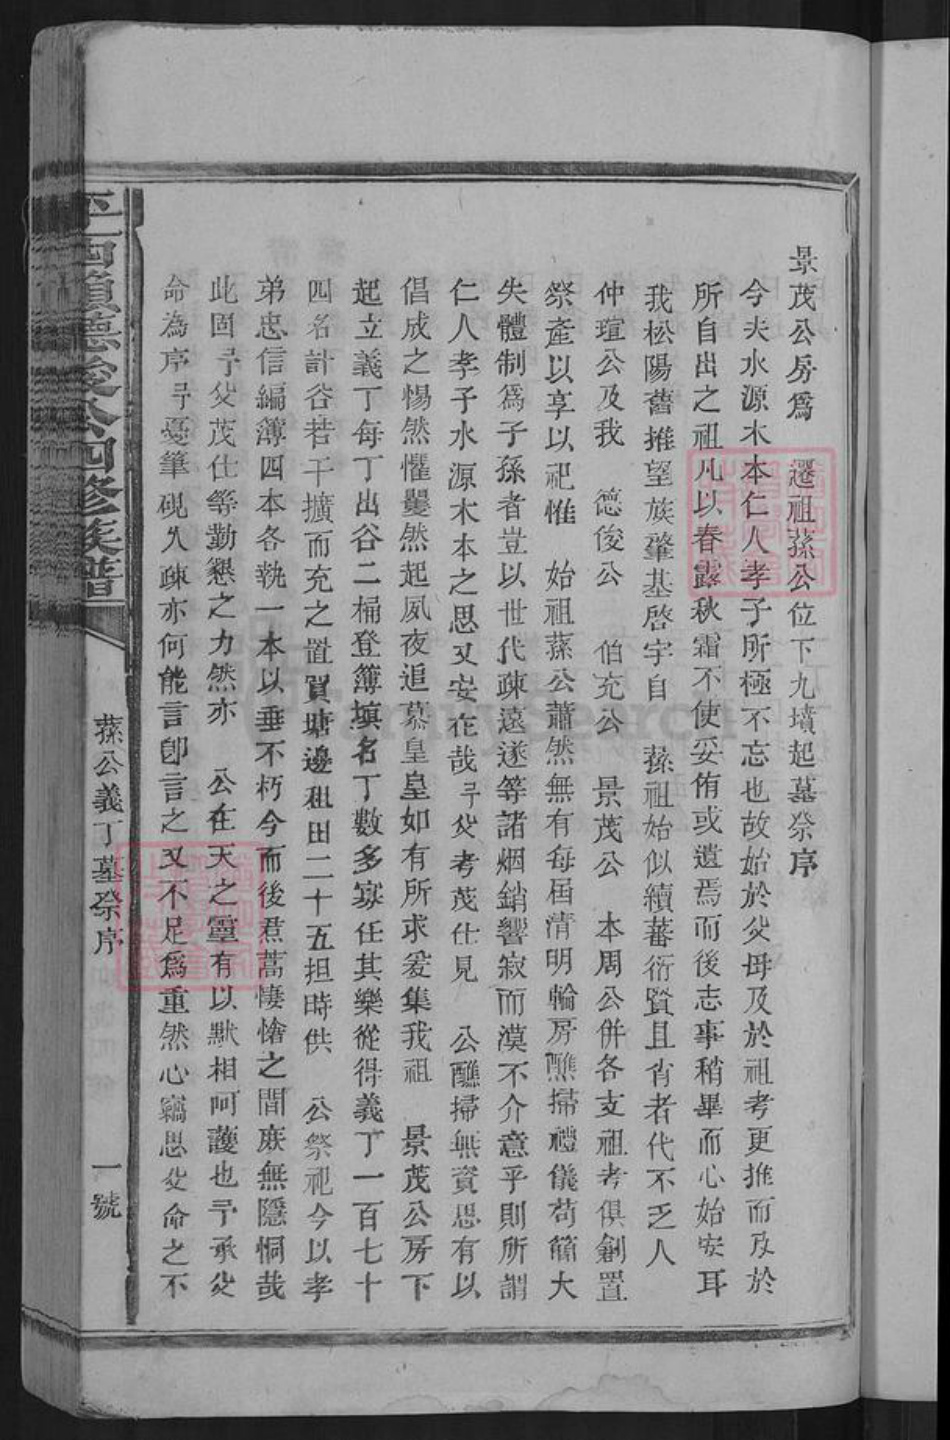 景茂公房爲　遷祖蓀公位下九墳起墓祭序
今夫水源木本仁人孝子所極不忘也故始於父母及於祖考更推而及於
所自出之祖凡以春露秋霜不使妥侑或遺焉而後志事稍畢而心始安耳
我松陽舊推望族肇基啓宇自　蓀祖始似續蕃衍賢且肖者代不乏人
仲瑄公及我　德俊公　伯充公　景茂公　本周公併各支祖考俱剏置
祭產以享以祀惟　始祖蓀公蕭然無有每屆清明輪房醮掃禮儀苟簡大
失體制爲子孫者豈以世代疎遠遂等諸烟銷響寂而漠不介意乎則所謂
仁人孝子水源木本之思又安在哉予父考茂仕見　公醮掃無資思有以
倡成之惕然懼矍然起夙夜追慕皇皇如有所求爰集我祖　景茂公房下
起立義丁每丁出谷二桶登簿塡名丁數多寡任其樂從得義丁一百七十
四名計谷若干擴而充之置買塘邊租田二十五担時供　公祭祀今以孝
弟忠信編簿四本各執一本以垂不朽今而後焄蒿悽愴之間庶無隱恫哉
此固予父茂仕等勤懇之力然亦　公在天之靈有以默相呵護也予承父
命為序予憂筆硯久疎亦何能言卽言之又不足爲重然心竊思父命之不
德俊公四修族譜
蓀公義丁墓祭序
一號
FamilySearch